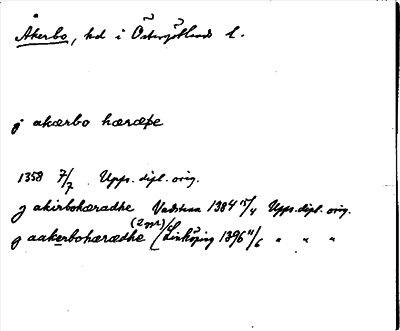 Åkerbo, hd i Östergötlands l.
j akærbo hæræþe
1358 7/7 Upps. dipl. orig.
j akirbohæradhe Vadstena 1384 17/4 Upps. dipl. orig.
j aakerbohærædhe (2 ggr) (Linköping 1396 11/6 " " "